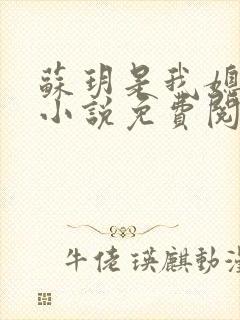 蘇玥是我媳
小說免費閱
牛佬瑛麒動漫